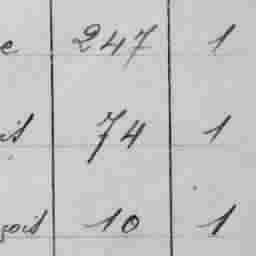 e 247 1
it 74 1
çois 10 1